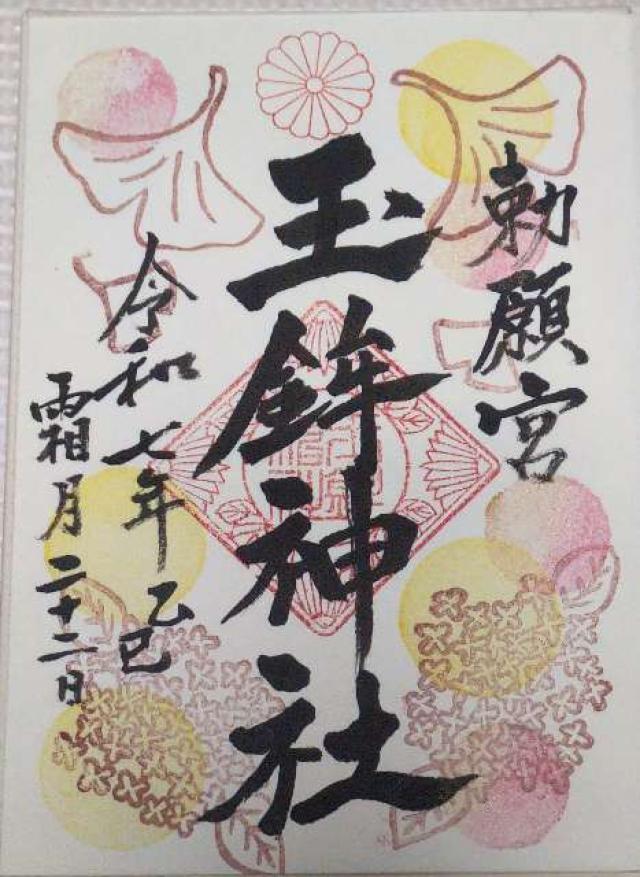 勅願宮
玉鉾神社
令和七年乙巳
霜月二十二日